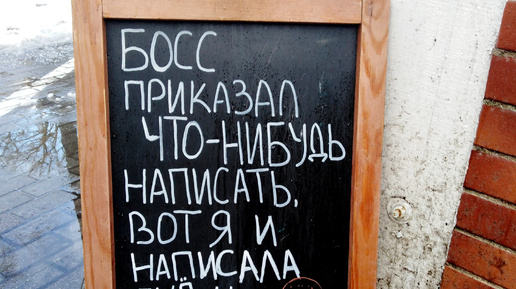 БОСС
ПРИКАЗАЛ
ЧТО-НИБУДЬ
НАПИСАТЬ,
ВОТ Я И
НАПИСАЛА